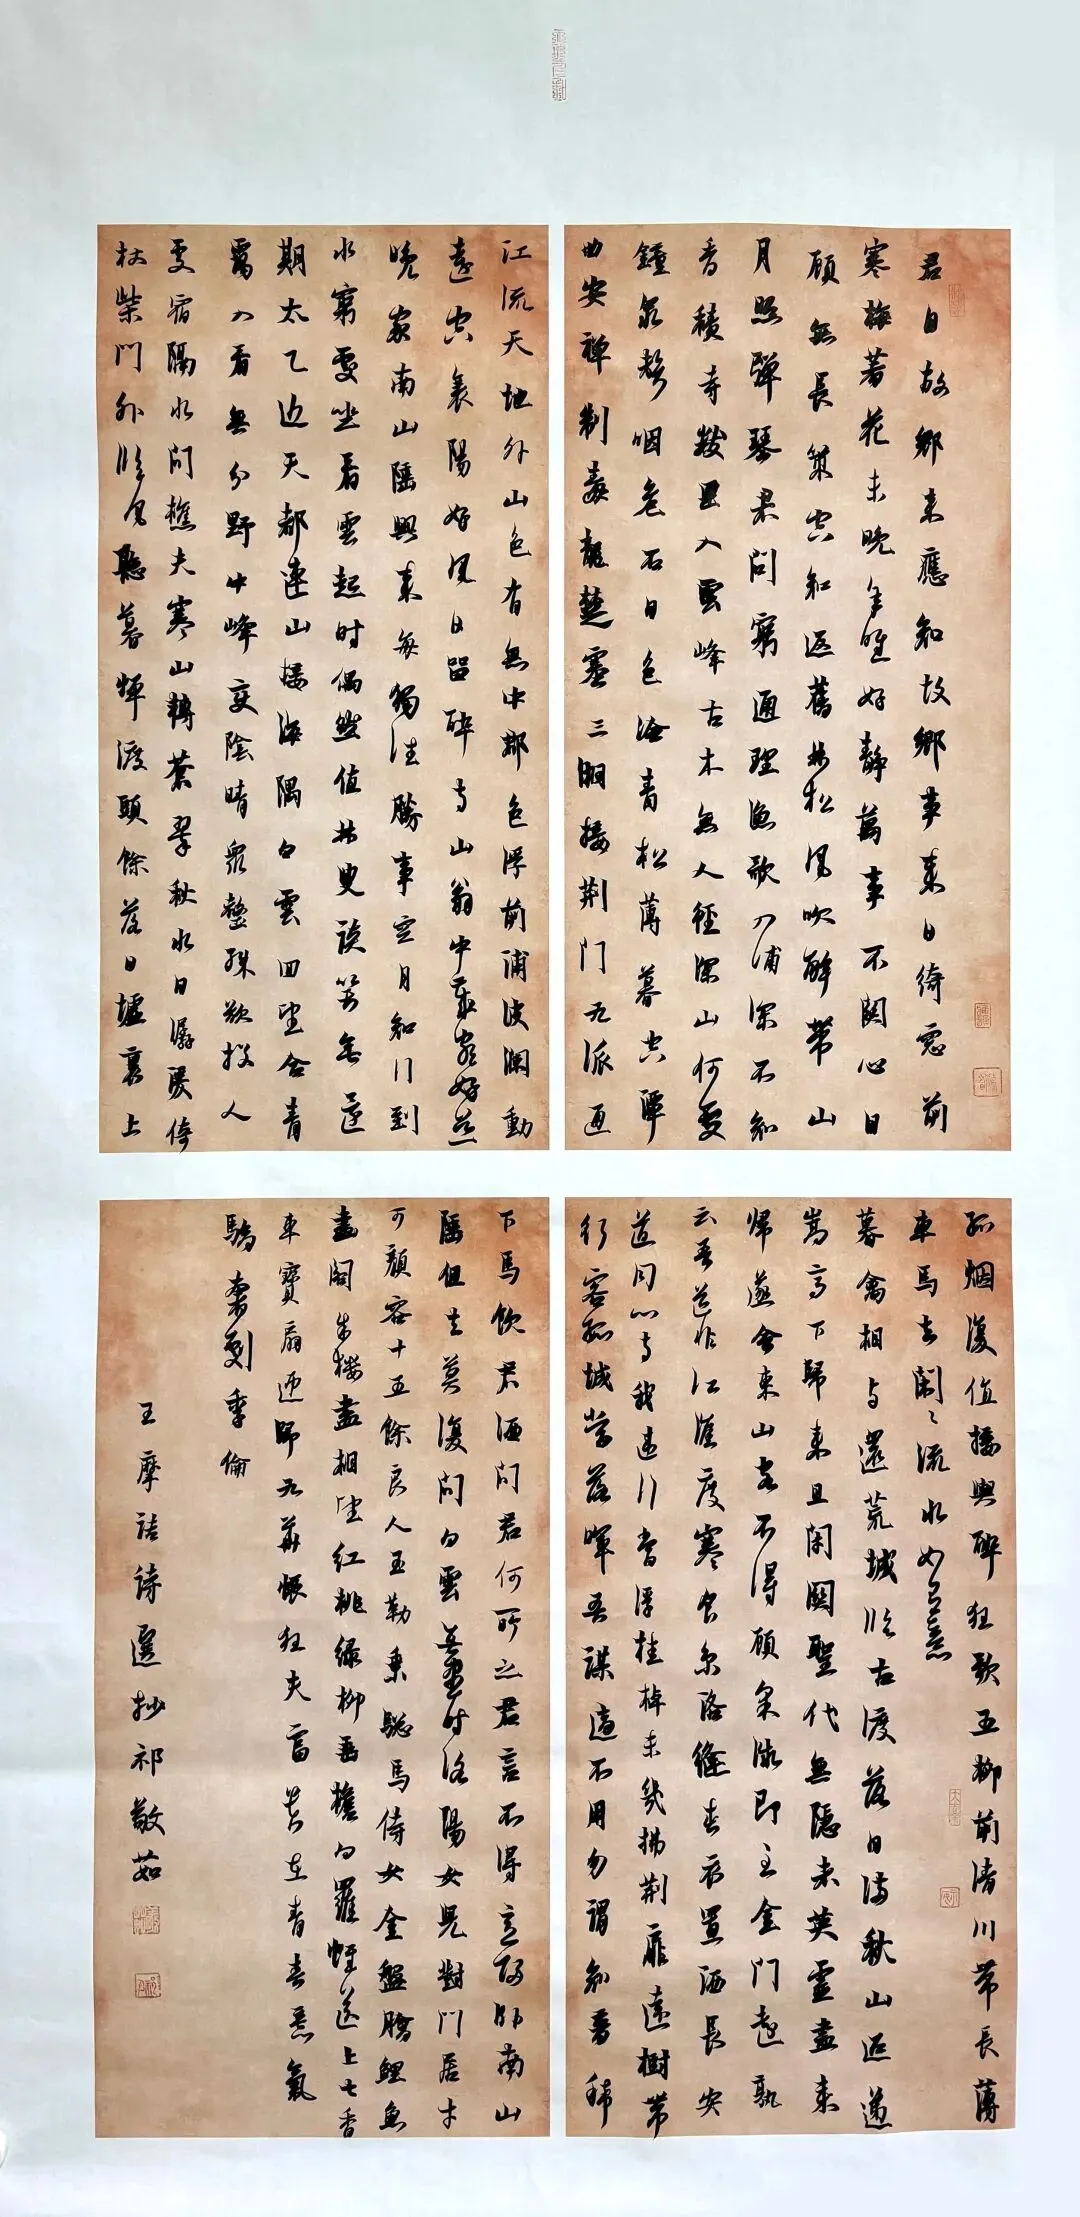 君自故鄉来應知故鄉事来日绮窓前
寒梅著花未晚年唯好静萬事不関心自
顧無長策空知返舊林松風吹解带山
月照弹琴君問窮通理漁歌入浦深不知
香積寺数里入雲峰古木無人径深山何處
鍾泉聲咽危石日色冷青松薄暮空潭
曲安禅制毒龍楚塞三湘接荆門九派通
江流天地外山色有無中郡色浮前浦波瀾動
遠空襄陽好風日留醉与山翁中歳頗好道
晚家南山陲興来每獨往勝事空自知行到
水窮處坐看雲起时偶然值林叟談笑無還
期太乙近天都連山接海隅白雲回望合青
靄入看無分野中峰变陰晴衆壑殊欲投人
處宿隔水問樵夫寒山轉蒼翠秋水日潺湲倚
杖柴門外临風聽暮蟬渡頭餘落日墟裏上
孤烟復值接輿醉狂歌五柳前清川带長薄
車馬去閑々流水如有意
暮禽相与還荒城临古渡落日满秋山迢遞
嵩高下歸来且闭関聖代無隐者英靈盡来
歸遂令東山客不得顧采薇即至金門遠孰
云吾道非江淮度寒食京洛縫春衣置酒長安
道同心与我違行當浮桂棹未幾拂荆扉遠樹带
行客孤城當落暉吾谋適不用勿謂知音稀
下馬飲君酒問君何所之君言不得意歸卧南山
陲但去莫復問白雲無盡时洛陽女兒對門居才
可顏容十五餘良人玉勒乗驄馬侍女金盤膾鯉魚
畫閣朱樓盡相望红桃绿柳垂檐向羅帷送上七香
車寶扇迎歸九華帳狂夫富贵在青春意氣
驕奢劇季倫
王摩詰诗選抄祁敬茹